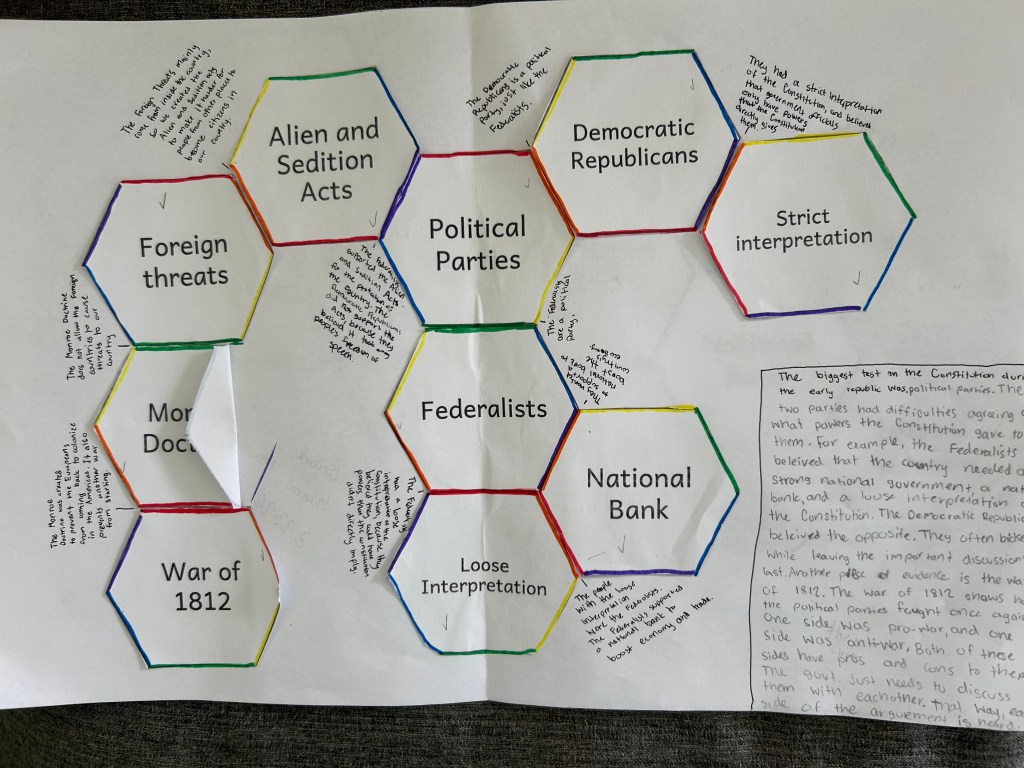 The Foreign Threats mainly
come from inside the country,
so we created the
Alien and Sedition acts
to make it harder for
people from other places to
become citizens in
our country.
Alien and
Sedition
Acts
The Democratic
Republicans is a political
party, just like the
Federalists.
Democratic
Republicans
They had a strict interpretation
of the Constitution and believed
that government officials
only have powers
that the Constitution
directly gives
them.
Strict
interpretation
Foreign
threats
Political
Parties
The Federalists
supported the Alien
and Sedition Acts
for the protection of
the country. The
Democratic Republicans
did not support the
Acts because they
believed it took away
people's freedom of
speech
The Federalists
are a political
party.
The Monroe Doctrine
does not allow the foreign
countries to cause
threats to our
country
Mon
Doct
Federalists
national bank to
boost the
country's
economy
National
Bank
The Monroe
Doctrine was created
to prevent the Europeans
from coming back to colonize
in the Americas. It also
prevents another war
from starting.
War of
1812
The Federalists
has a loose
interpretation of the
Constitution, because they
believed they could have
powers that the constitution
didnt directly imply.
Loose
Interpretation
The people
with the loose
interpretation
were the Federalists.
The Federalists supported
a national bank to
boost economy and trade.
The biggest test on the Constitution duri
the early republic was political parties. The
two parties had difficulties agreeing o
what powers the Constitution gave to
them. For example, the Federalists
beleived that the country needed a
strong national government, a nat
bank, and a loose interpretation o
the Constitution. The Democratic Republic
beleived the opposite. They often
while leaving the important discussion
last. Another of evidence is the wa
of 1812. The war of 1812 shows h
the political parties fought once again
One side was pro-war, and one
side was anti-war. Both of these
sides have pros and cons to the
The govt. just needs to discuss
them with eachother. That way, ea
side of the arguement is heard.